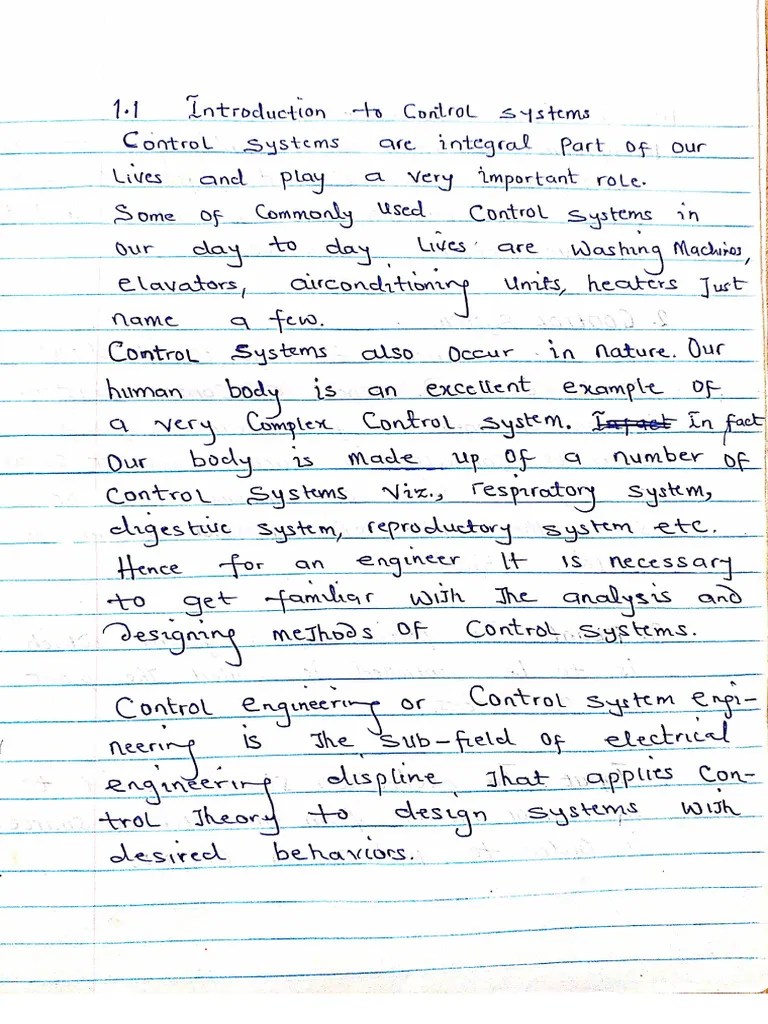 1.1 Introduction to Control systems
Control systems are integral part of our
lives and play a very important role.
Some of commonly used control systems in
our day to day lives are washing Machines,
elavators, airconditioning units, heaters Just
name a few.
Control systems also occur in nature. Our
human body is an excellent example of
a very complex control system. Infact In fact
our body is made up of a number of
control systems viz., respiratory system,
digestive system, reproductory system etc.
Hence for an engineer It is necessary
to get familiar with the analysis and
designing methods of control systems.
Control engineering or Control system engi-
neering is the sub-field of electrical
engineering displine that applies con-
trol theory to design systems with
desired behaviors.